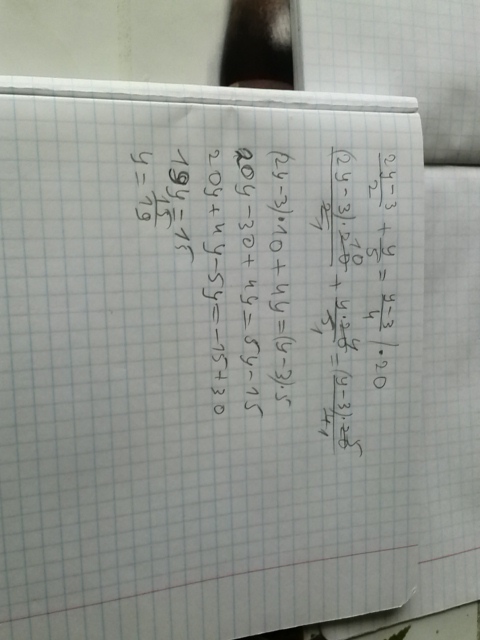 (2y-3)/2 + y/5 = (y-3)/4 |·20
(2y-3)·20 10/2 1 + y·20 4/5 1 = (y-3)·20 5/4 1
(2y-3)·10 + 4y = (y-3)·5
20y - 30 + 4y = 5y - 15
20y + 4y - 5y = -15 + 30
19y = 15
y = 15/19